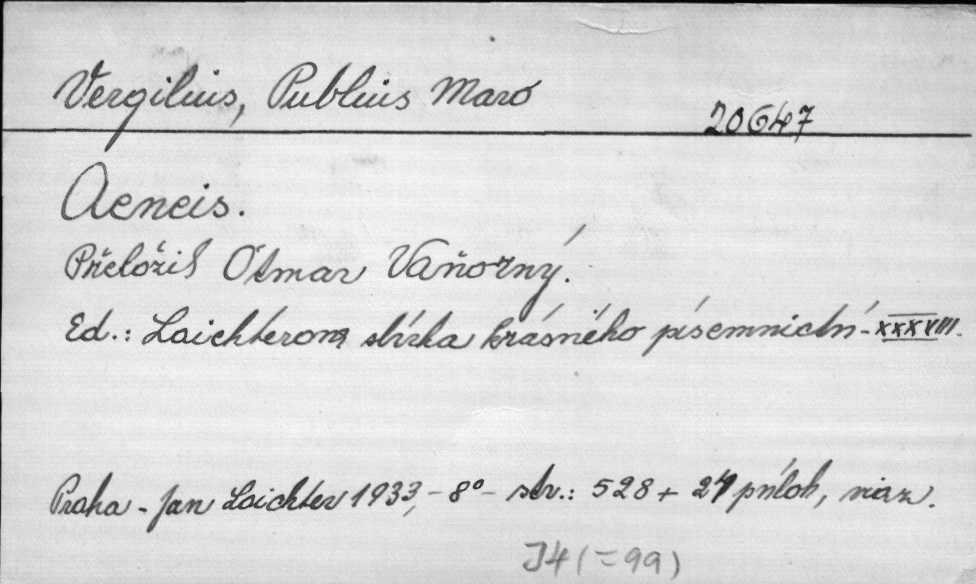 Vergilius, Publius Maro
20647
Aeneis.
Přeložil Otmar Vaňorný.
Ed.: Laichterova sbírka krásného písemnictví - XXXVIII.
Praha - Jan Laichter 1933, - 8° - str.: 528 + 24 příloh, viaz.
J4 (=99)